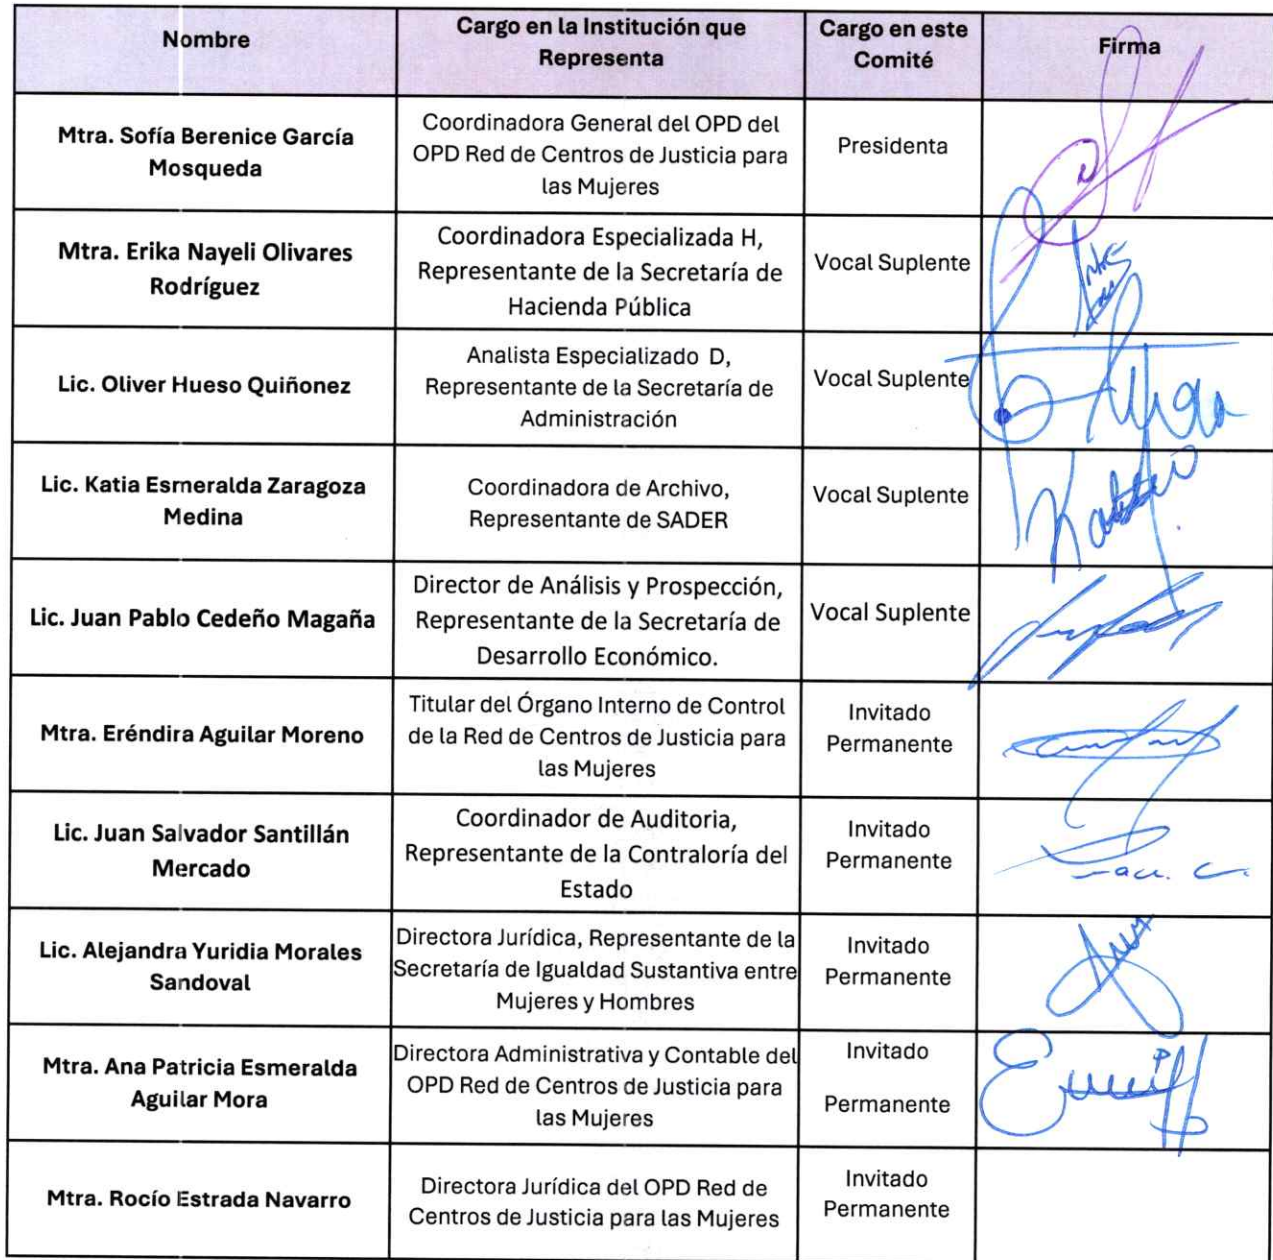 Nombre
Cargo en la Institución que
Representa
Cargo en este
Comité
Firma
Mtra. Sofía Berenice García
Mosqueda
Coordinadora General del OPD del
OPD Red de Centros de Justicia para
las Mujeres
Presidenta
Mtra. Erika Nayeli Olivares
Rodríguez
Coordinadora Especializada H,
Representante de la Secretaría de
Hacienda Pública
Vocal Suplente
Lic. Oliver Hueso Quiñonez
Analista Especializado D,
Representante de la Secretaría de
Administración
Vocal Suplente
Lic. Katia Esmeralda Zaragoza
Medina
Coordinadora de Archivo,
Representante de SADER
Vocal Suplente
Lic. Juan Pablo Cedeño Magaña
Director de Análisis y Prospección,
Representante de la Secretaría de
Desarrollo Económico.
Vocal Suplente
Mtra. Eréndira Aguilar Moreno
Titular del Órgano Interno de Control
de la Red de Centros de Justicia para
las Mujeres
Invitado
Permanente
Lic. Juan Salvador Santillán
Mercado
Coordinador de Auditoria,
Representante de la Contraloría del
Estado
Invitado
Permanente
Lic. Alejandra Yuridia Morales
Sandoval
Directora Jurídica, Representante de la
Secretaría de Igualdad Sustantiva entre
Mujeres y Hombres
Invitado
Permanente
Mtra. Ana Patricia Esmeralda
Aguilar Mora
Directora Administrativa y Contable del
OPD Red de Centros de Justicia para
las Mujeres
Invitado
Permanente
Mtra. Rocío Estrada Navarro
Directora Jurídica del OPD Red de
Centros de Justicia para las Mujeres
Invitado
Permanente